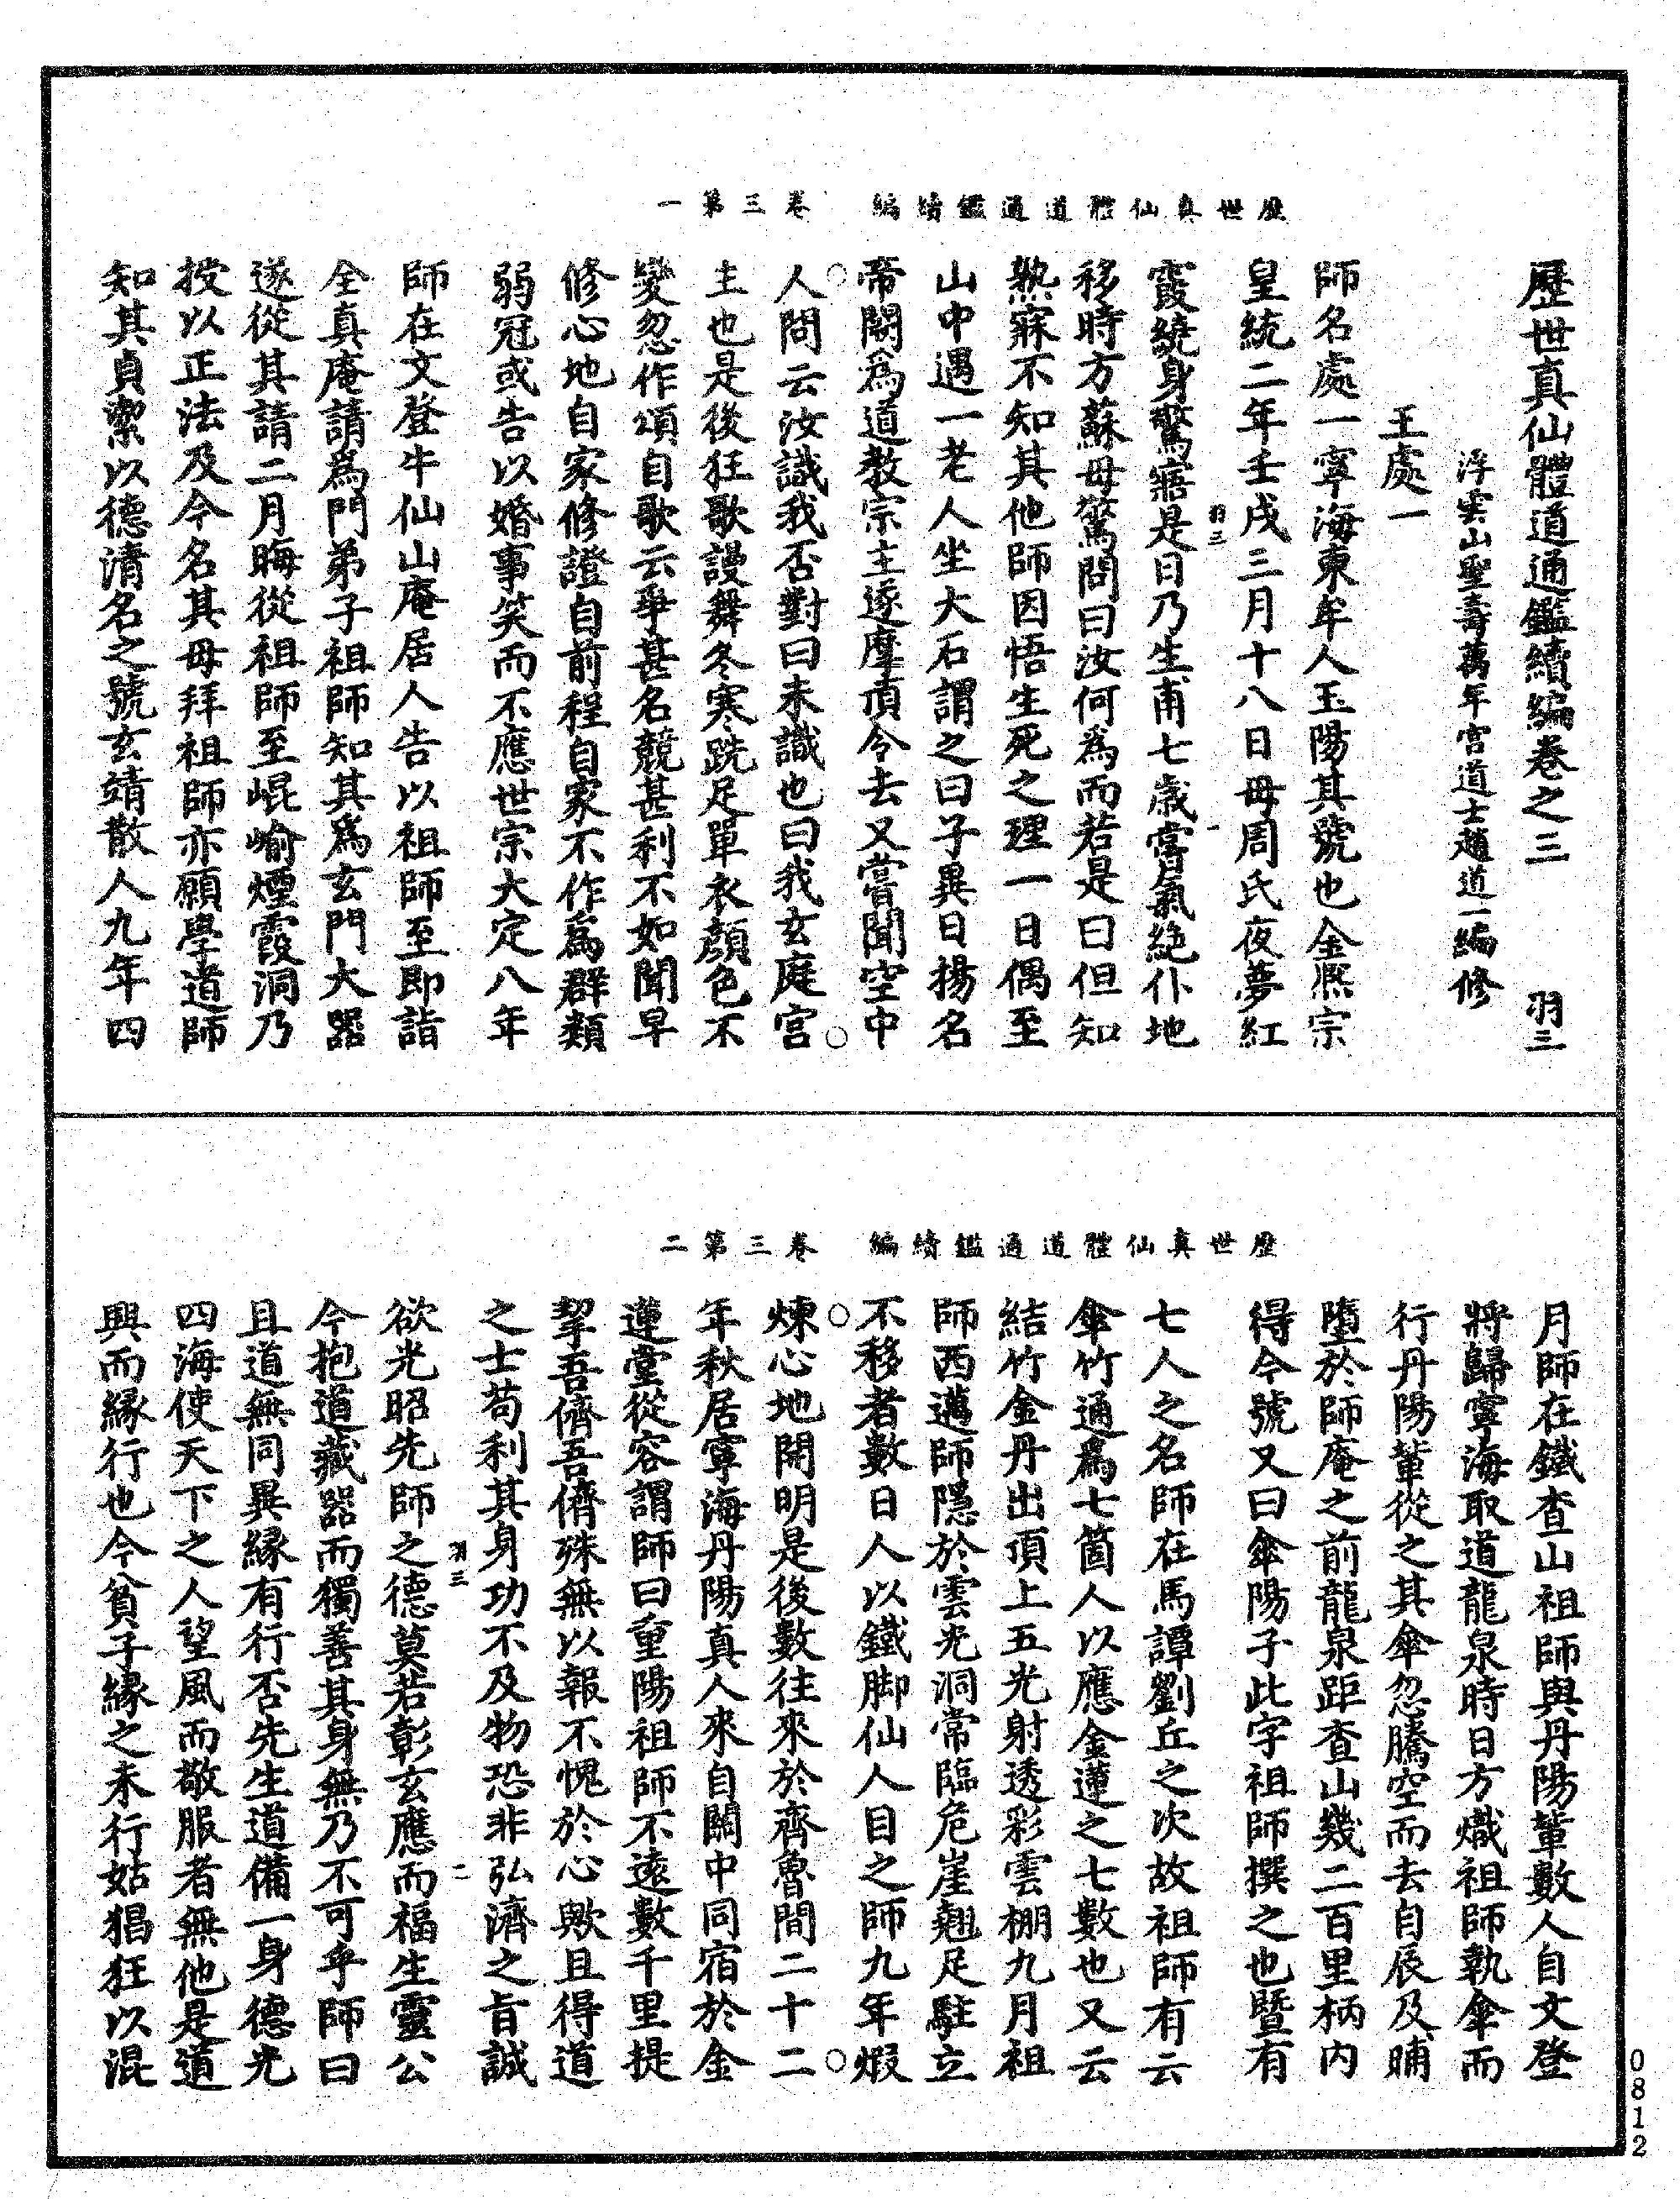 歷世真仙體道通鑑續編　卷三第一
歷世真仙體道通鑑續編卷之三　羽三
浮雲山聖壽萬年宮道士趙道一編修
王處一
師名處一寧海東牟人玉陽其號也金熈宗
皇統二年壬戌三月十八日母周氏夜夢紅
羽三　一
霞繞身驚寤是日乃生甫七歲嘗氣絶仆地
移時方蘇母驚問曰汝何爲而若是曰但知
熟寐不知其他師因悟生死之理一日偶至
山中遇一老人坐大石謂之曰子異日揚名
帝闕爲道教宗主遂摩頂令去又嘗聞空中
人問云汝識我否對曰未識也曰我玄庭宮
主也是後狂歌謾舞冬寒跣足單衣顔色不
變忽作頌自歌云爭甚名競甚利不如聞早
修心地自家修證自前程自家不作爲群類
弱冠或告以婚事笑而不應世宗大定八年
師在文登牛仙山庵居人告以祖師至即詣
全真庵請爲門弟子祖師知其爲玄門大器
遂從其請二月晦從祖師至崐嵛煙霞洞乃
授以正法及今名其母拜祖師亦願學道師
知其貞潔以德清名之號玄靖散人九年四
歷世真仙體道通鑑續編　卷三第二
月師在鐵查山祖師與丹陽輩數人自文登
將歸寧海取道龍泉時日方熾祖師執傘而
行丹陽輩從之其傘忽騰空而去自辰及晡
墮於師庵之前龍泉距查山幾二百里柄内
得今號又曰傘陽子此字祖師撰之也暨有
七人之名師在馬譚劉丘之次故祖師有云
傘竹通爲七箇人以應金蓮之七數也又云
結竹金丹出頂上五光射透彩雲棚九月祖
師西邁師隱於雲光洞常臨危崖翹足駐立
不移者數日人以鐵脚仙人目之師九年煅
煉心地開明是後數往來於齊魯間二十二
年秋居寧海丹陽真人來自關中同宿於金
蓮堂從容謂師曰重陽祖師不遠數千里提
挈吾儕吾儕殊無以報不愧於心歟且得道
之士苟利其身功不及物恐非弘濟之旨誠
羽三　二
欲光昭先師之德莫若彰玄應而福生靈公
今抱道藏器而獨善其身無乃不可乎師曰
且道無同異緣有行否先生道備一身德光
四海使天下之人望風而敬服者無他是道
興而緣行也今貧子緣之未行姑猖狂以混
0812